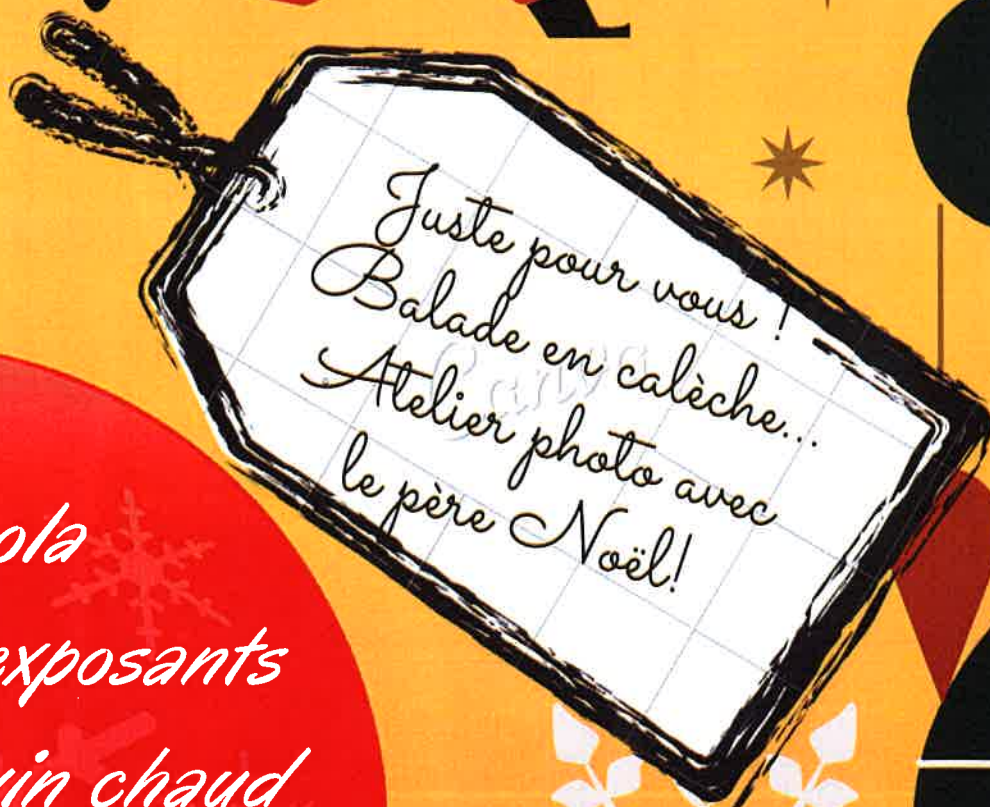 Juste pour vous !
Balade en calèche...
Atelier photo avec
le père Noël!
exposants
vin chaud